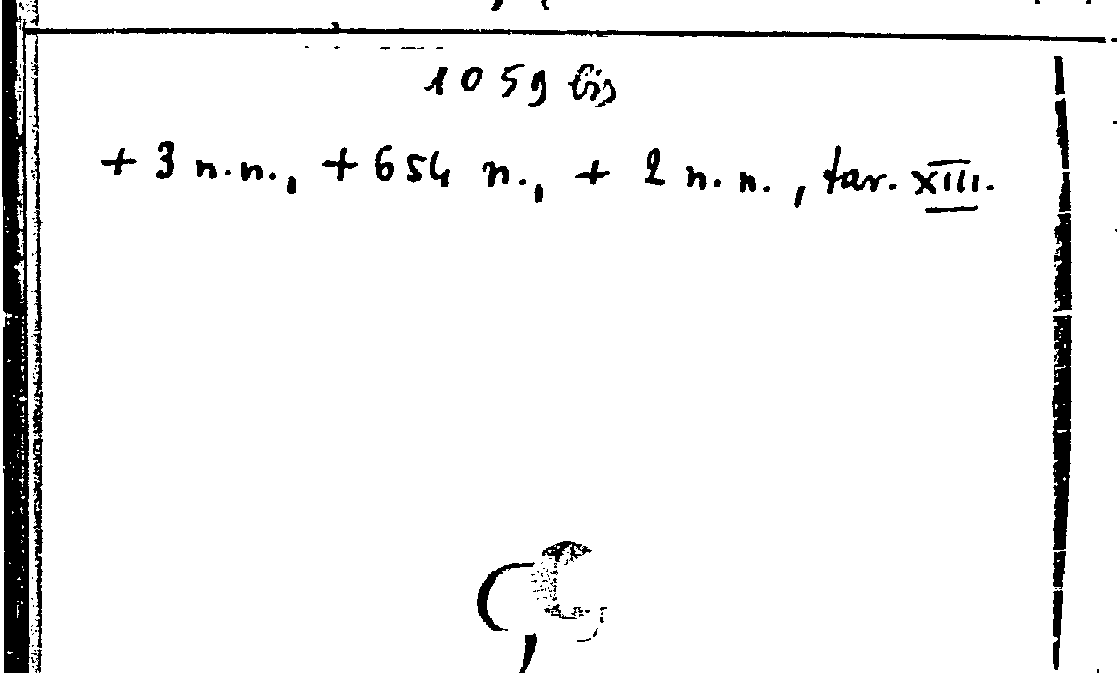 1059 bis
+ 3 n.n., + 654 n., + 2 n.n., tav. XIII.